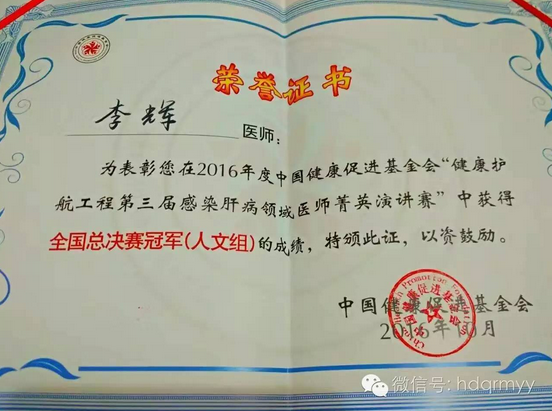 荣誉证书
李辉 医师：
为表彰您在2016年度中国健康促进基金会“健康护
航工程第三届感染肝病领域医师菁英演讲赛”中获得
全国总决赛冠军(人文组)的成绩，特颁此证，以资鼓励。
中国健康促进基金会
2016年 月
微信号: hdqrmyy